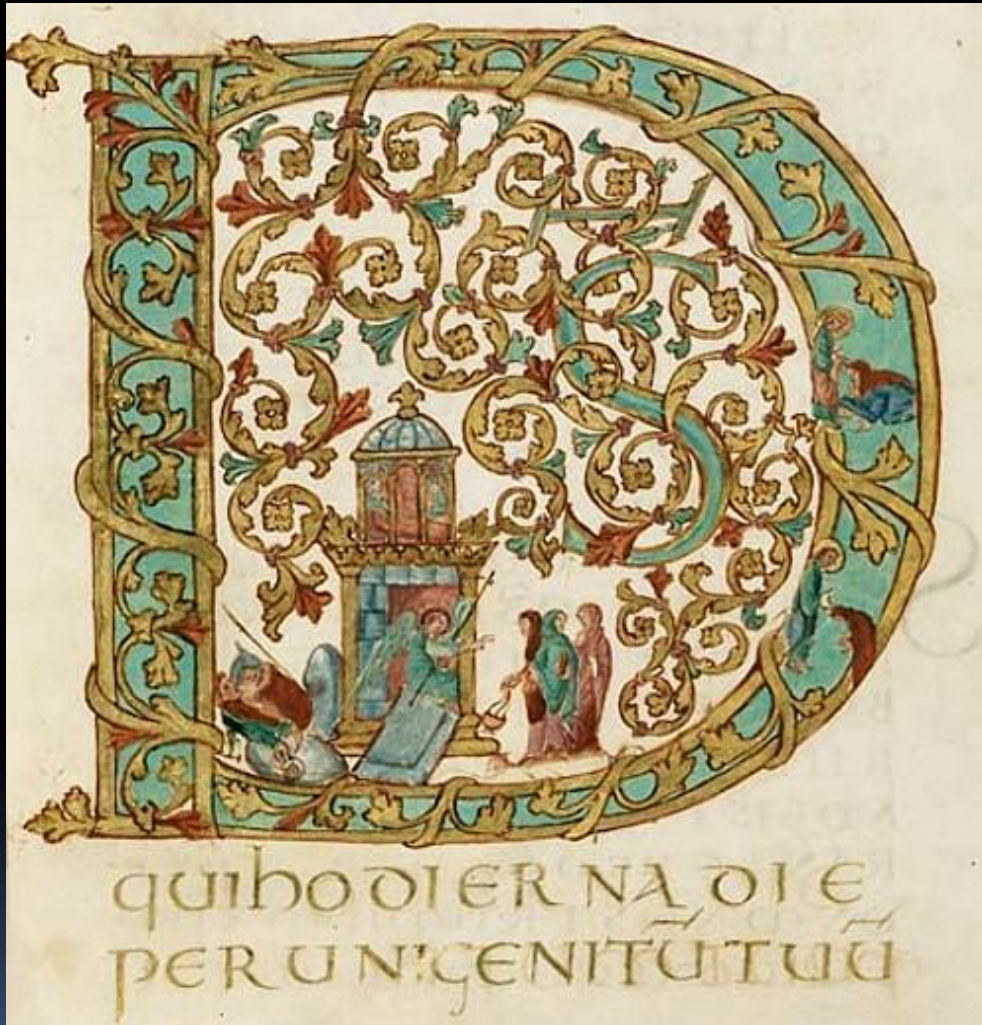 DS̄
quihodierna die
per unigenitū tuū